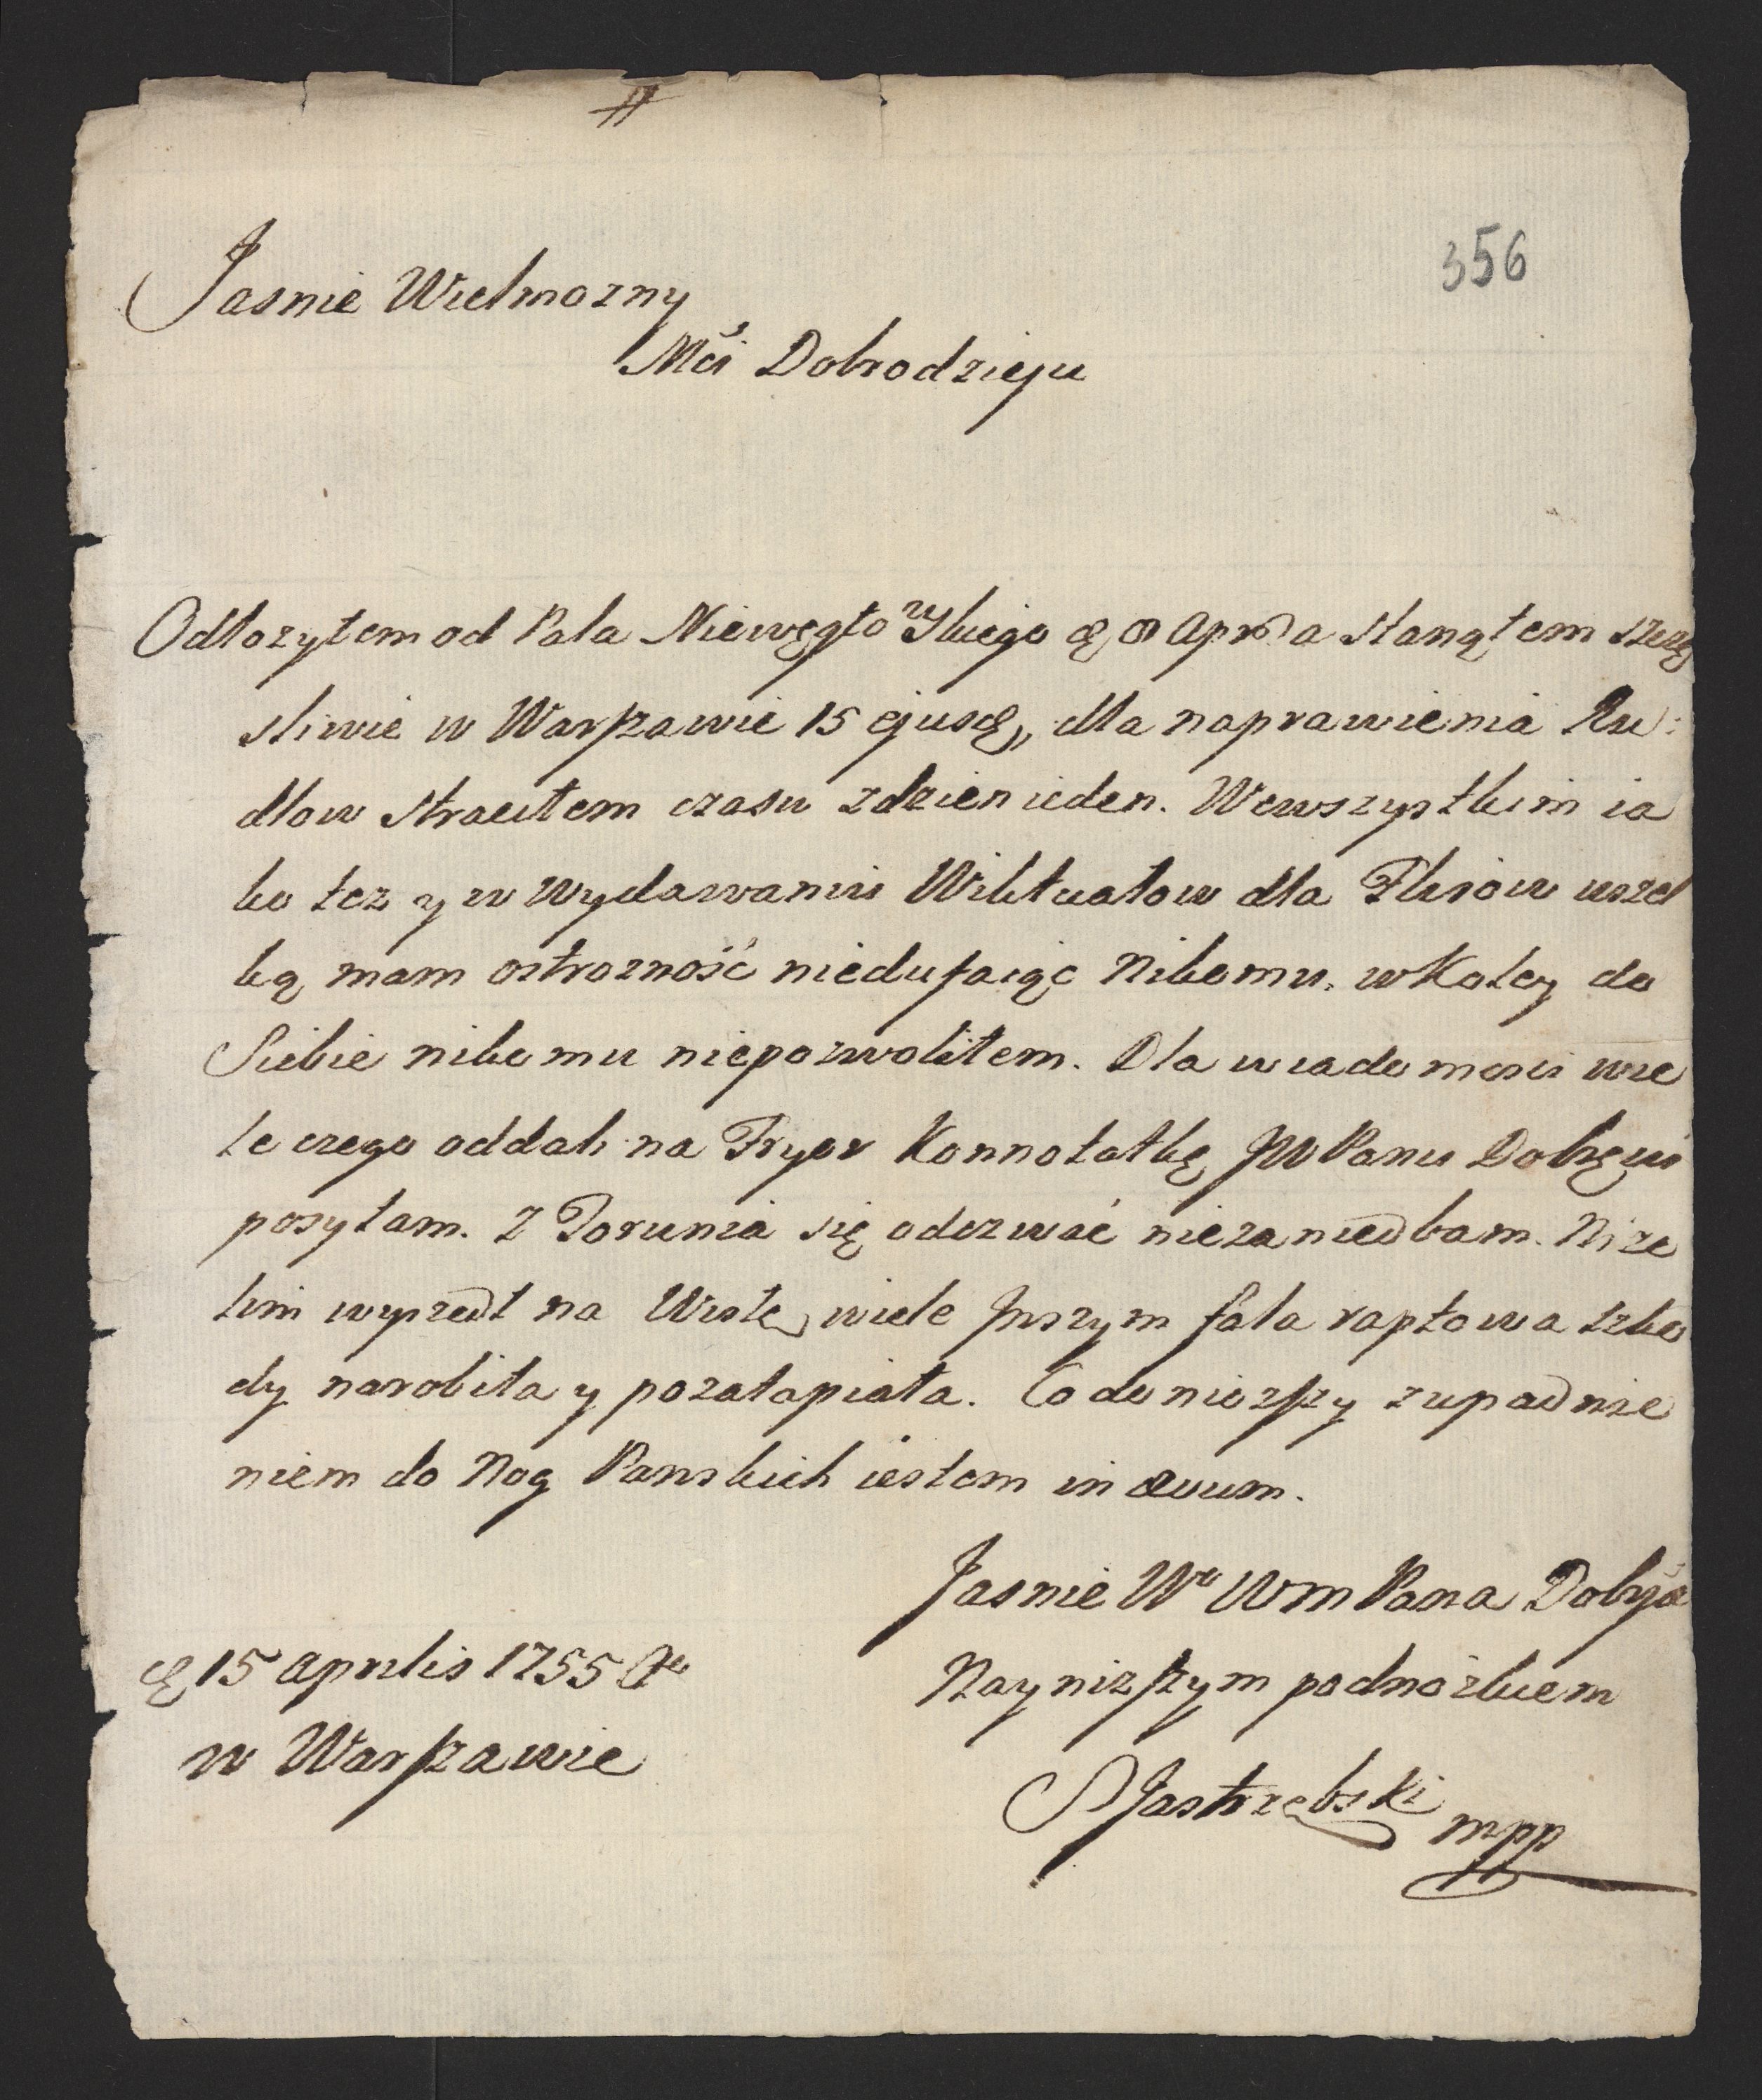 356
Jasnie Wielmozny
Mći Dobrodzieju
Odłozyłem od Pala Niewęgłowskiego d 8 Apr: a stanąłem szczę
sliwie w Warszawie 15 ejusd, dla naprawienia Ru:
dłow straciłem czasu zdzien ieden. Wewszystkim ia
ko tez y w wydawaniu Wiktuałow dla Flisow wszel
ką mam ostrozność niedufaiąc Nikomu. w Koley do
Siebie nikomu niepozwoliłem. Dla wiadomosci wie
le czego oddali na Fryor Konnotatkę JW Panu Dobrzejowi
posyłam. Z Torunia się odezwać niezaniedbam. Nize
lim wyszedł na Wisłę, wiele Inszym fala raptowa szko
dy narobiła y pozatapiała. Co doniozszy z upadnie
niem do Nog Panskich iestem in ævum.
Jasnie Wo WM Pana Dobrja
Nayniszszym podnożkiem
d 15 Aprilis 1755
w Warszawie
Jastrzębski
mpp